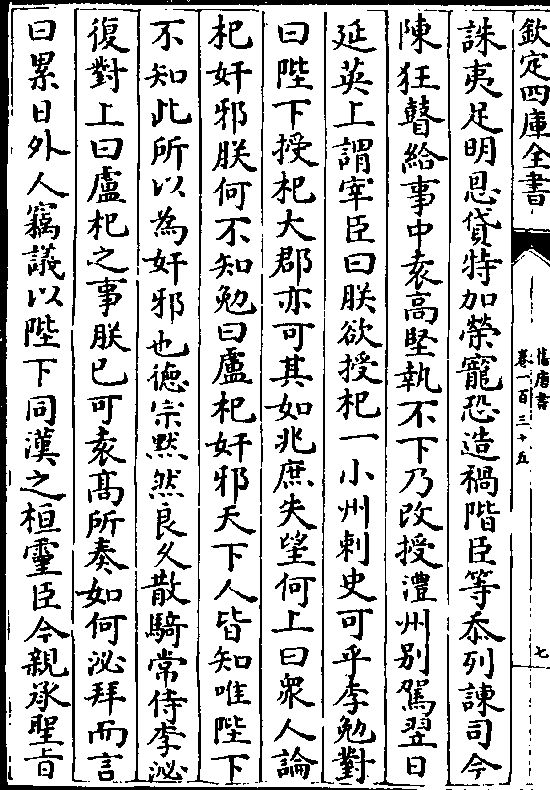 欽定四庫全書
舊唐書
卷一百三十五
七
誅夷足明恩貸特加榮寵恐造禍階臣等忝列諫司今
陳狂瞽給事中袁高堅執不下乃改授澧州别駕翌日
延英上謂宰臣曰朕欲授杞一小州刺史可乎李勉對
曰陛下授杞大郡亦可其如兆庶失望何上曰衆人論
杞奸邪朕何不知勉曰盧杞奸邪天下人皆知唯陛下
不知此所以為奸邪也德宗默然良久散騎常侍李泌
復對上曰盧杞之事朕已可袁高所奏如何泌拜而言
曰累日外人竊議以陛下同漢之桓靈臣今親承聖旨